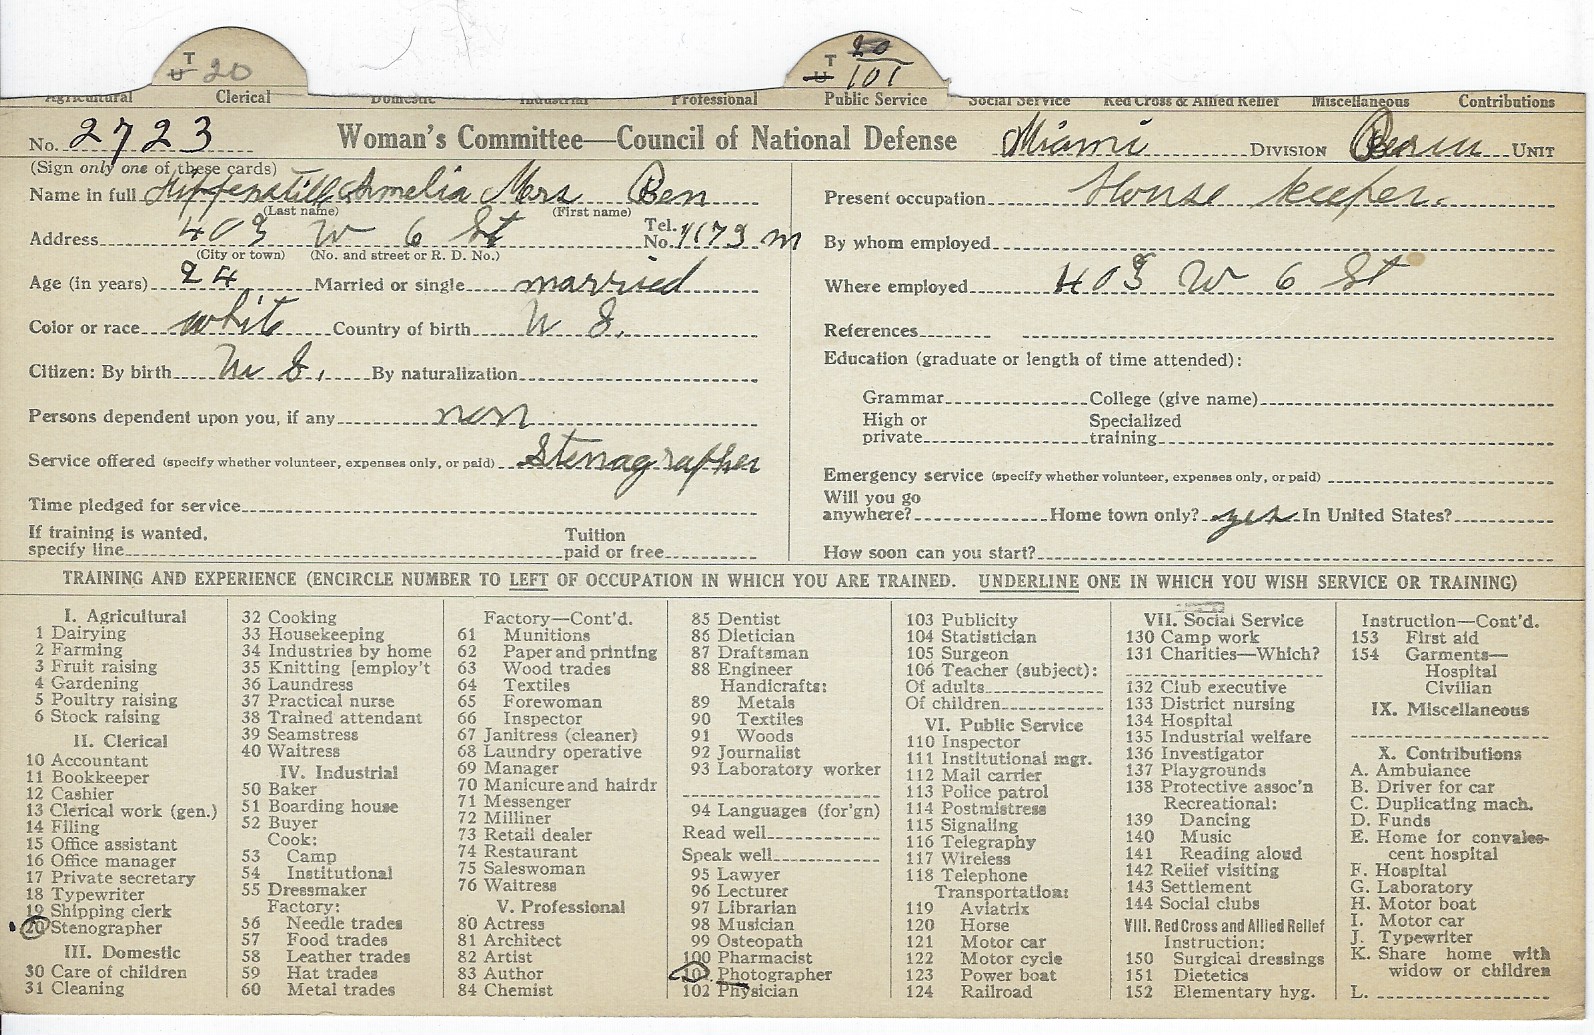 T
U 20
T 20
U 101
Agricultural Clerical Domestic Industrial Professional Public Service Social Service Red Cross & Allied Relief Miscellaneous Contributions
No. 2723 Woman's Committee—Council of National Defense Miami DIVISION UNIT
(Sign only one of these cards)
Name in full Amelia Mrs Ben
(Last name) (First name)
Address 403 W 6 St Tel. No. 1173 M
(City or town) (No. and street or R. D. No.)
Age (in years) 24 Married or single married
Color or race white Country of birth U S.
Citizen: By birth U S. By naturalization
Persons dependent upon you, if any non
Service offered (specify whether volunteer, expenses only, or paid) Stenagrapher
Time pledged for service
If training is wanted, specify line Tuition paid or free
Present occupation House keeper.
By whom employed
Where employed 403 W 6 St
References
Education (graduate or length of time attended):
Grammar College (give name)
High or private Specialized training
Emergency service (specify whether volunteer, expenses only, or paid)
Will you go anywhere? Home town only? yes In United States?
How soon can you start?
TRAINING AND EXPERIENCE (ENCIRCLE NUMBER TO LEFT OF OCCUPATION IN WHICH YOU ARE TRAINED. UNDERLINE ONE IN WHICH YOU WISH SERVICE OR TRAINING)
I. Agricultural
1 Dairying
2 Farming
3 Fruit raising
4 Gardening
5 Poultry raising
6 Stock raising
II. Clerical
10 Accountant
11 Bookkeeper
12 Cashier
13 Clerical work (gen.)
14 Filing
15 Office assistant
16 Office manager
17 Private secretary
18 Typewriter
19 Shipping clerk
20 Stenographer
III. Domestic
30 Care of children
31 Cleaning
32 Cooking
33 Housekeeping
34 Industries by home
35 Knitting [employ't
36 Laundress
37 Practical nurse
38 Trained attendant
39 Seamstress
40 Waitress
IV. Industrial
50 Baker
51 Boarding house
52 Buyer
Cook:
53 Camp
54 Institutional
55 Dressmaker
Factory:
56 Needle trades
57 Food trades
58 Leather trades
59 Hat trades
60 Metal trades
Factory—Cont'd.
61 Munitions
62 Paper and printing
63 Wood trades
64 Textiles
65 Forewoman
66 Inspector
67 Janitress (cleaner)
68 Laundry operative
69 Manager
70 Manicure and hairdr
71 Messenger
72 Milliner
73 Retail dealer
74 Restaurant
75 Saleswoman
76 Waitress
V. Professional
80 Actress
81 Architect
82 Artist
83 Author
84 Chemist
85 Dentist
86 Dietician
87 Draftsman
88 Engineer
Handicrafts:
89 Metals
90 Textiles
91 Woods
92 Journalist
93 Laboratory worker
94 Languages (for'gn)
Read well
Speak well
95 Lawyer
96 Lecturer
97 Librarian
98 Musician
99 Osteopath
100 Pharmacist
101 Photographer
102 Physician
103 Publicity
104 Statistician
105 Surgeon
106 Teacher (subject):
Of adults
Of children
VI. Public Service
110 Inspector
111 Institutional mgr.
112 Mail carrier
113 Police patrol
114 Postmistress
115 Signaling
116 Telegraphy
117 Wireless
118 Telephone
Transportation:
119 Aviatrix
120 Horse
121 Motor car
122 Motor cycle
123 Power boat
124 Railroad
VII. Social Service
130 Camp work
131 Charities—Which?
132 Club executive
133 District nursing
134 Hospital
135 Industrial welfare
136 Investigator
137 Playgrounds
138 Protective assoc'n
Recreational:
139 Dancing
140 Music
141 Reading aloud
142 Relief visiting
143 Settlement
144 Social clubs
VIII. Red Cross and Allied Relief
Instruction:
150 Surgical dressings
151 Dietetics
152 Elementary hyg.
Instruction—Cont'd.
153 First aid
154 Garments—
Hospital
Civilian
IX. Miscellaneous
X. Contributions
A. Ambulance
B. Driver for car
C. Duplicating mach.
D. Funds
E. Home for convales-
cent hospital
F. Hospital
G. Laboratory
H. Motor boat
I. Motor car
J. Typewriter
K. Share home with
widow or children
L.